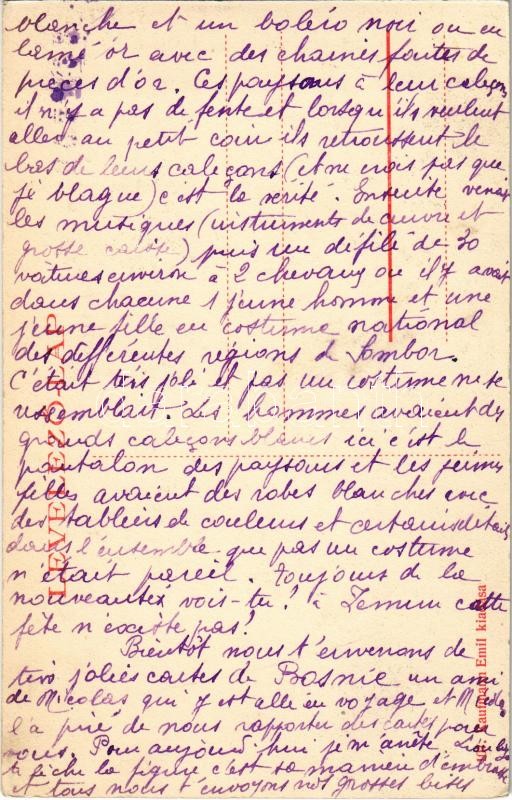 blanche et un boléro noir ou en
lamé or avec des chaines fortes de
pièces d'or. Ces paysans à leur caleçon
il n'y a pas de fente et lorsqu'ils veulent
aller au petit coin ils retroussent le
bas de leurs caleçons (et ne crois pas que
je blague) c'est la vérité. Ensuite venait
les musiques (instruments de cuivre et
grosse caisse) puis un défilé de 30
voitures environ à 2 chevaux ou il y avait
dans chacune 1 jeune homme et une
jeune fille en costume national
des différentes régions de Sombor.
C'était très joli et pas un costume ne se
ressemblait. Les hommes avaient des
grands caleçons blancs ici c'est le
pantalon des paysans et les jeunes
filles avaient des robes blanches avec
des tabliers de couleurs et certains détails
dans l'ensemble que pas un costume
n'était pareil. Toujours de la
nouveauté, vois-tu! à Zemun cette
fête n'existe pas!
Bientôt nous t'enverrons de
très jolies cartes de Bosnie un ami
de Nicolas qui y est allé en voyage et
l'a prié de nous rapporter des cartes pour
vous. Pour aujourd'hui je m'arrête.
la figure c'est sa manière
et tous nous t'envoyons nos grosses bises
LEVELEZŐ-LAP
Kaufmann Emil kiadása